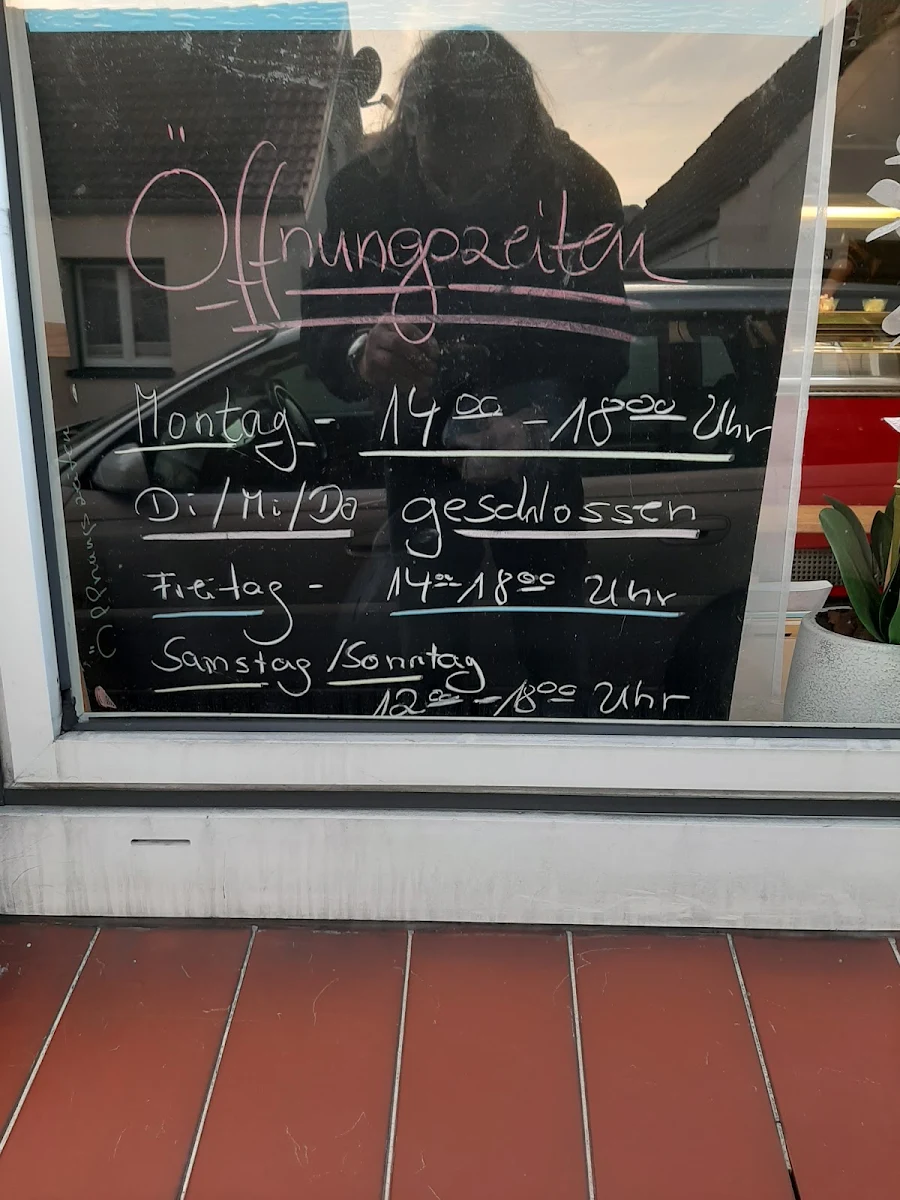 Öffnungszeiten
Montag - 14 00 - 18 00 Uhr
Di/Mi/Do geschlossen
Freitag - 14 00 - 18 00 Uhr
Samstag / Sonntag
12 00 - 18 00 Uhr